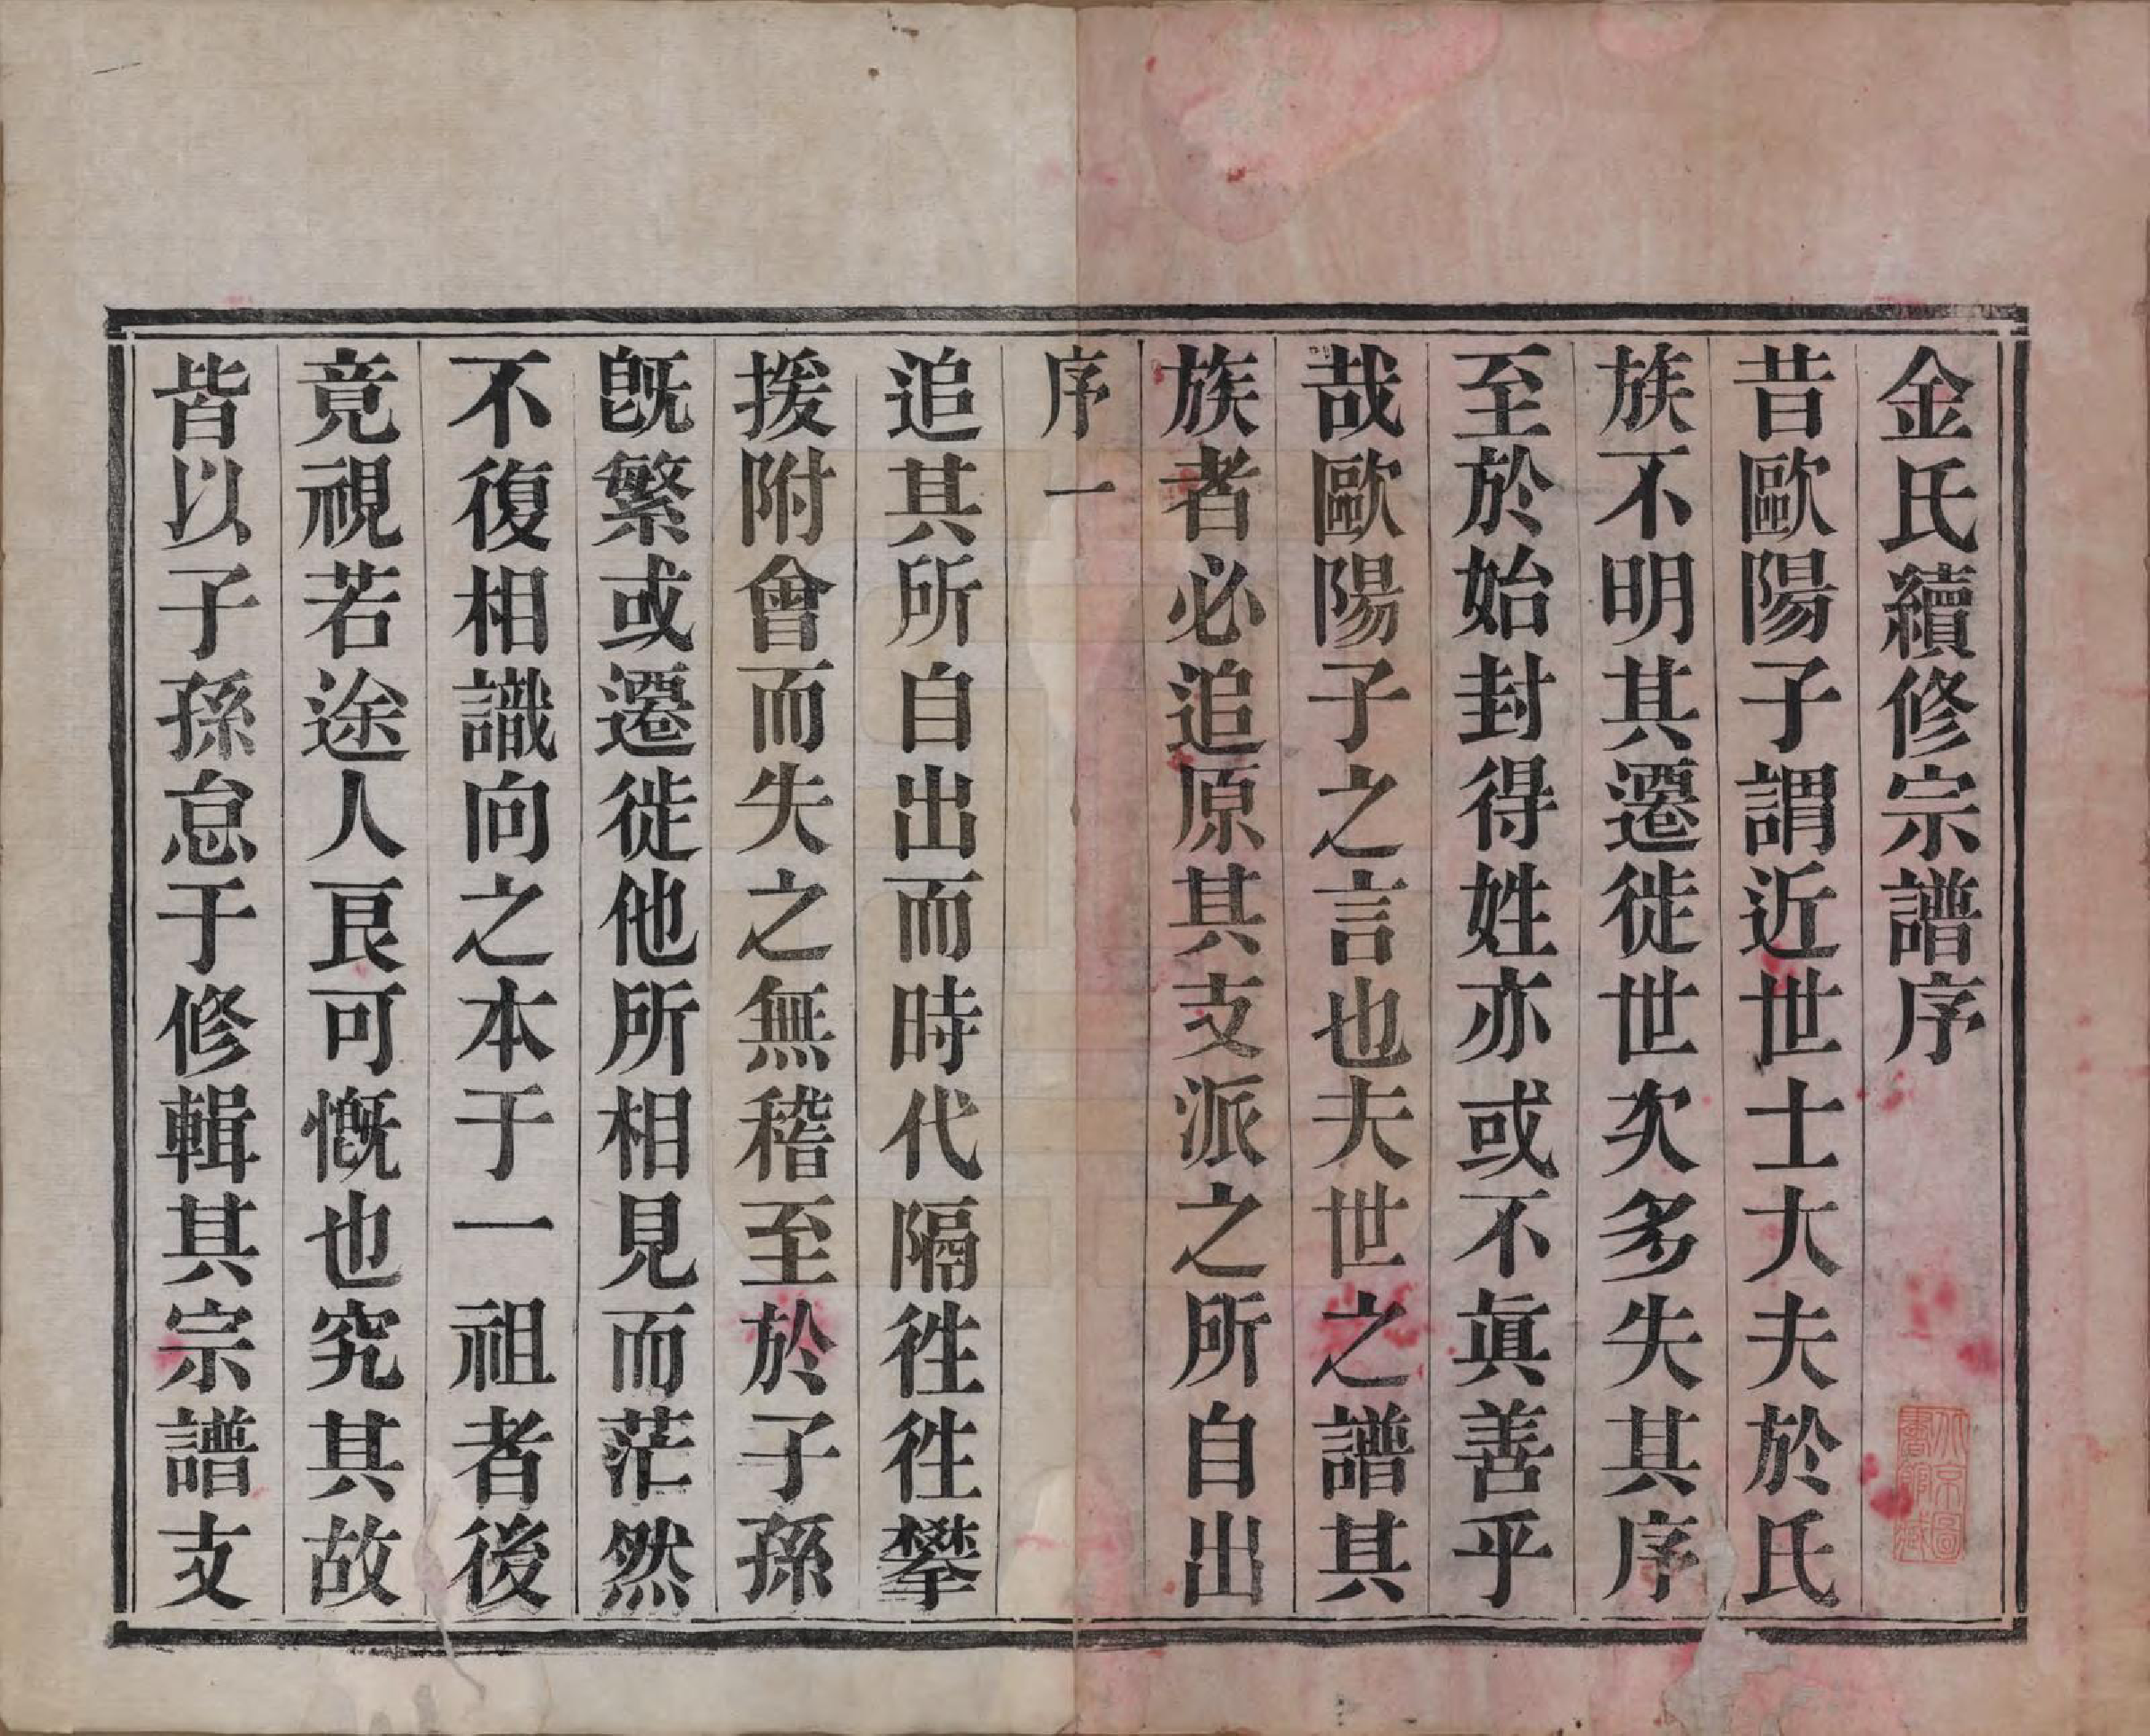 金氏續修宗譜序
昔歐陽子謂近世士大夫於氏
族不明其遷徙世次多失其序
至於始封得姓亦或不眞善乎
哉歐陽子之言也夫世之譜其
族者必追原其支派之所自出
序一
追其所自出而時代隔徃徃攀
援附會而失之無稽至於子孫
旣繁或遷徙他所相見而茫然
不復相識向之本于一祖者後
竟視若途人良可慨也究其故
皆以子孫怠于修輯其宗譜支